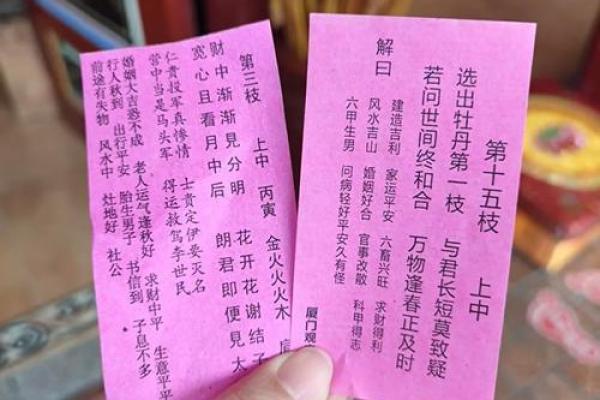 第十五枝 上中
选出牡丹第一枝 与君长短莫致疑
若问世间终和合 万物逢春正及时
解曰
建造吉利 家运平安 六畜兴旺 求财得利
风水吉山 婚姻好合 官事改散 科甲得志
六甲生男 问病轻好平安久有怪
厦门观
第三枝 上中 丙寅 金火火火木
财中渐渐見分明 花开花谢结子
宽心且看月中后 朗君即便見太
仁贵投军真惨情 士贵定伊要灭名
营中当是马头军 得运救驾李世民
婚姻大吉恐不成 老人运气逢秋好 求财中平 生意平平
行人秋到 出行平安 胎生男子 书信到 子息不多
前途有失物 风水中 灶地好 社公